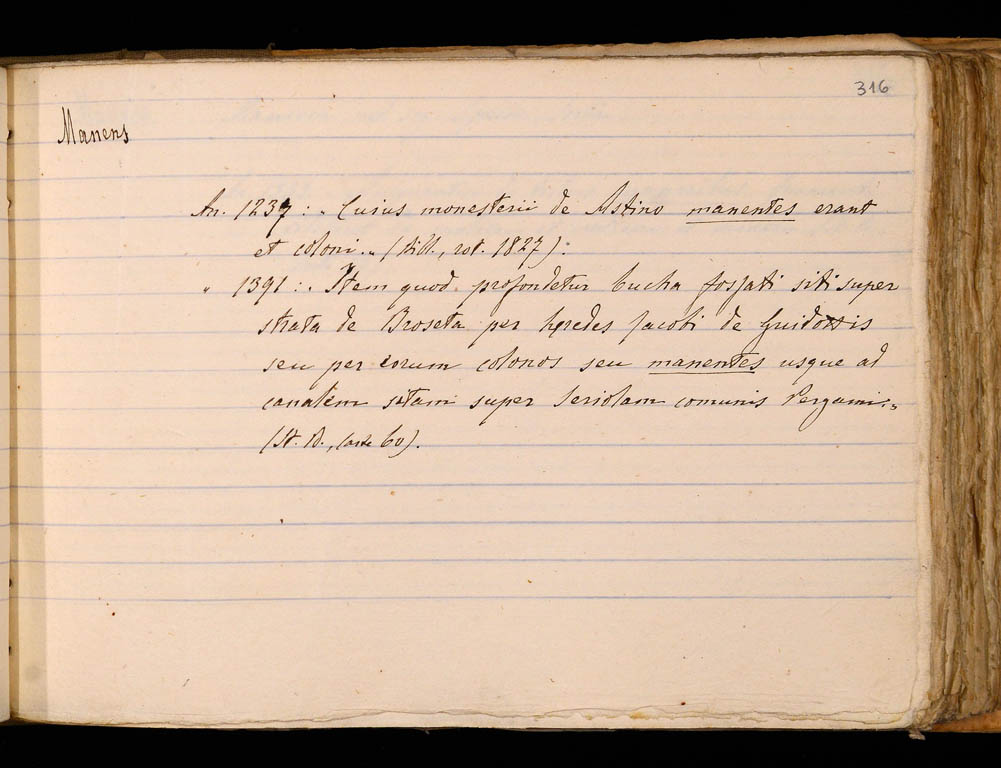 316
Manens
An. 1237 : „ Cuius monesterii de Astino manentes erant
et coloni. „ (Bibl., rot. 1827).
„ 1391 : „ Item quod profondetur bucha fossati siti super
strata de Broseta per heredes Jacobi de Guidottis
seu per eorum colonos seu manentes usque ad
canalem sitam super Seriolam comunis Pergami. „
(St. B., carte 60).